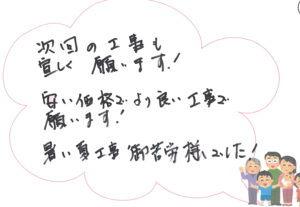 次回の工事も
宜しく願います!
安い価格でより良い工事で
願います!
暑い夏工事御苦労様でした!